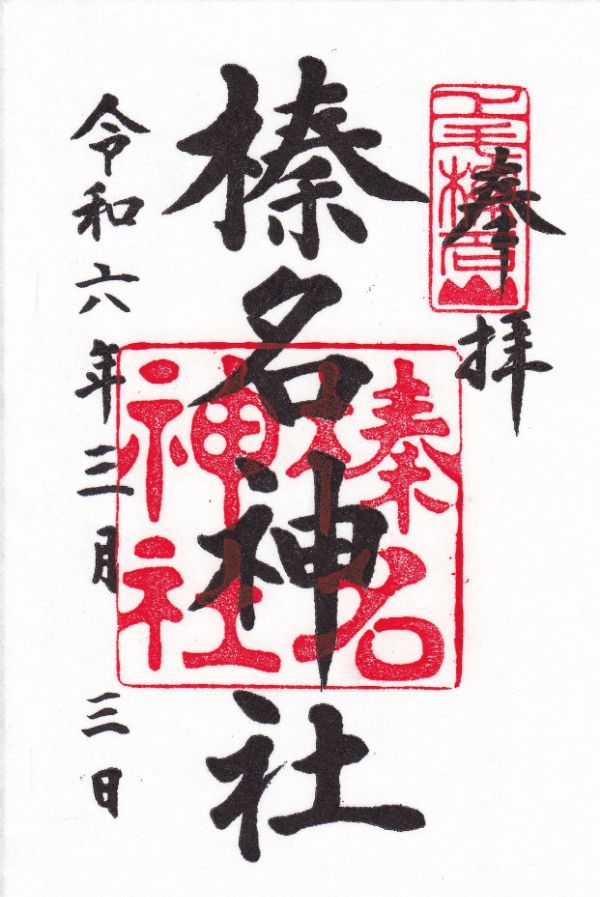 奉拝
上毛榛名山
榛名神社
榛名神社
令和六年三月三日